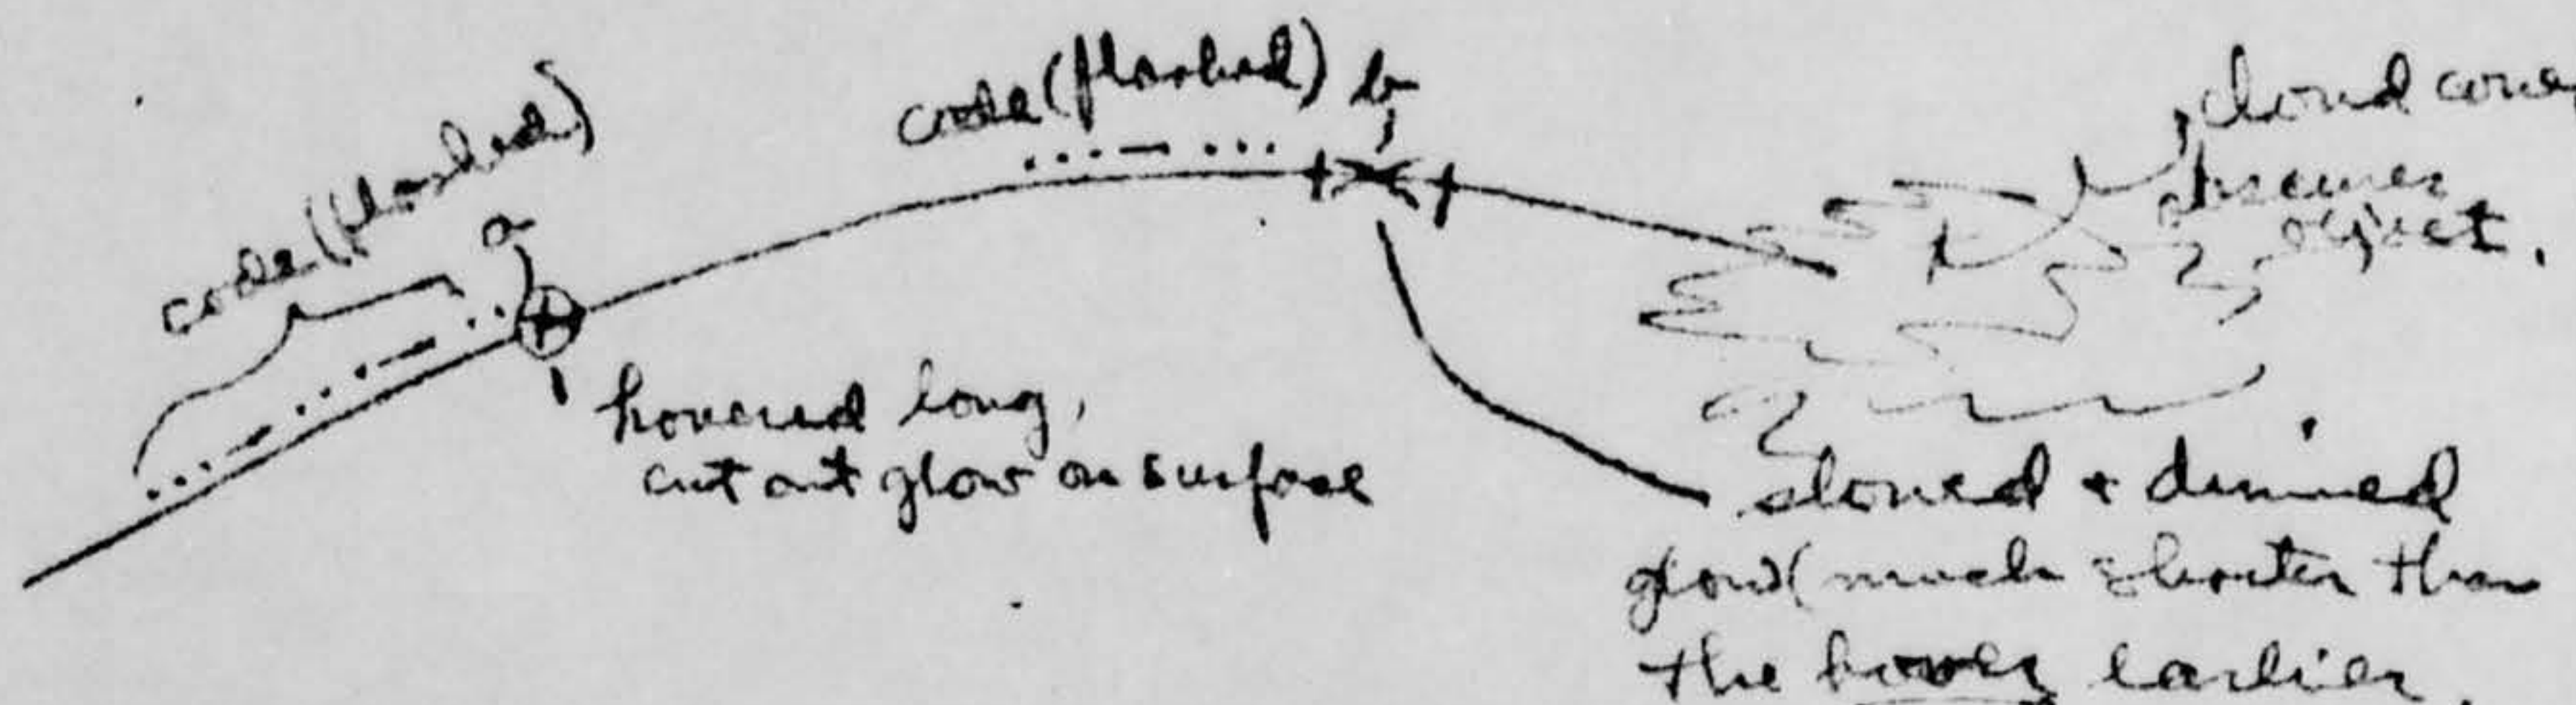 code (flashed)
a
code (flashed) b
cloud cover
obscures
object.
hovered long,
cut out glow on surface
slowed + dimmed
glow (much shorter than
the hover earlier.